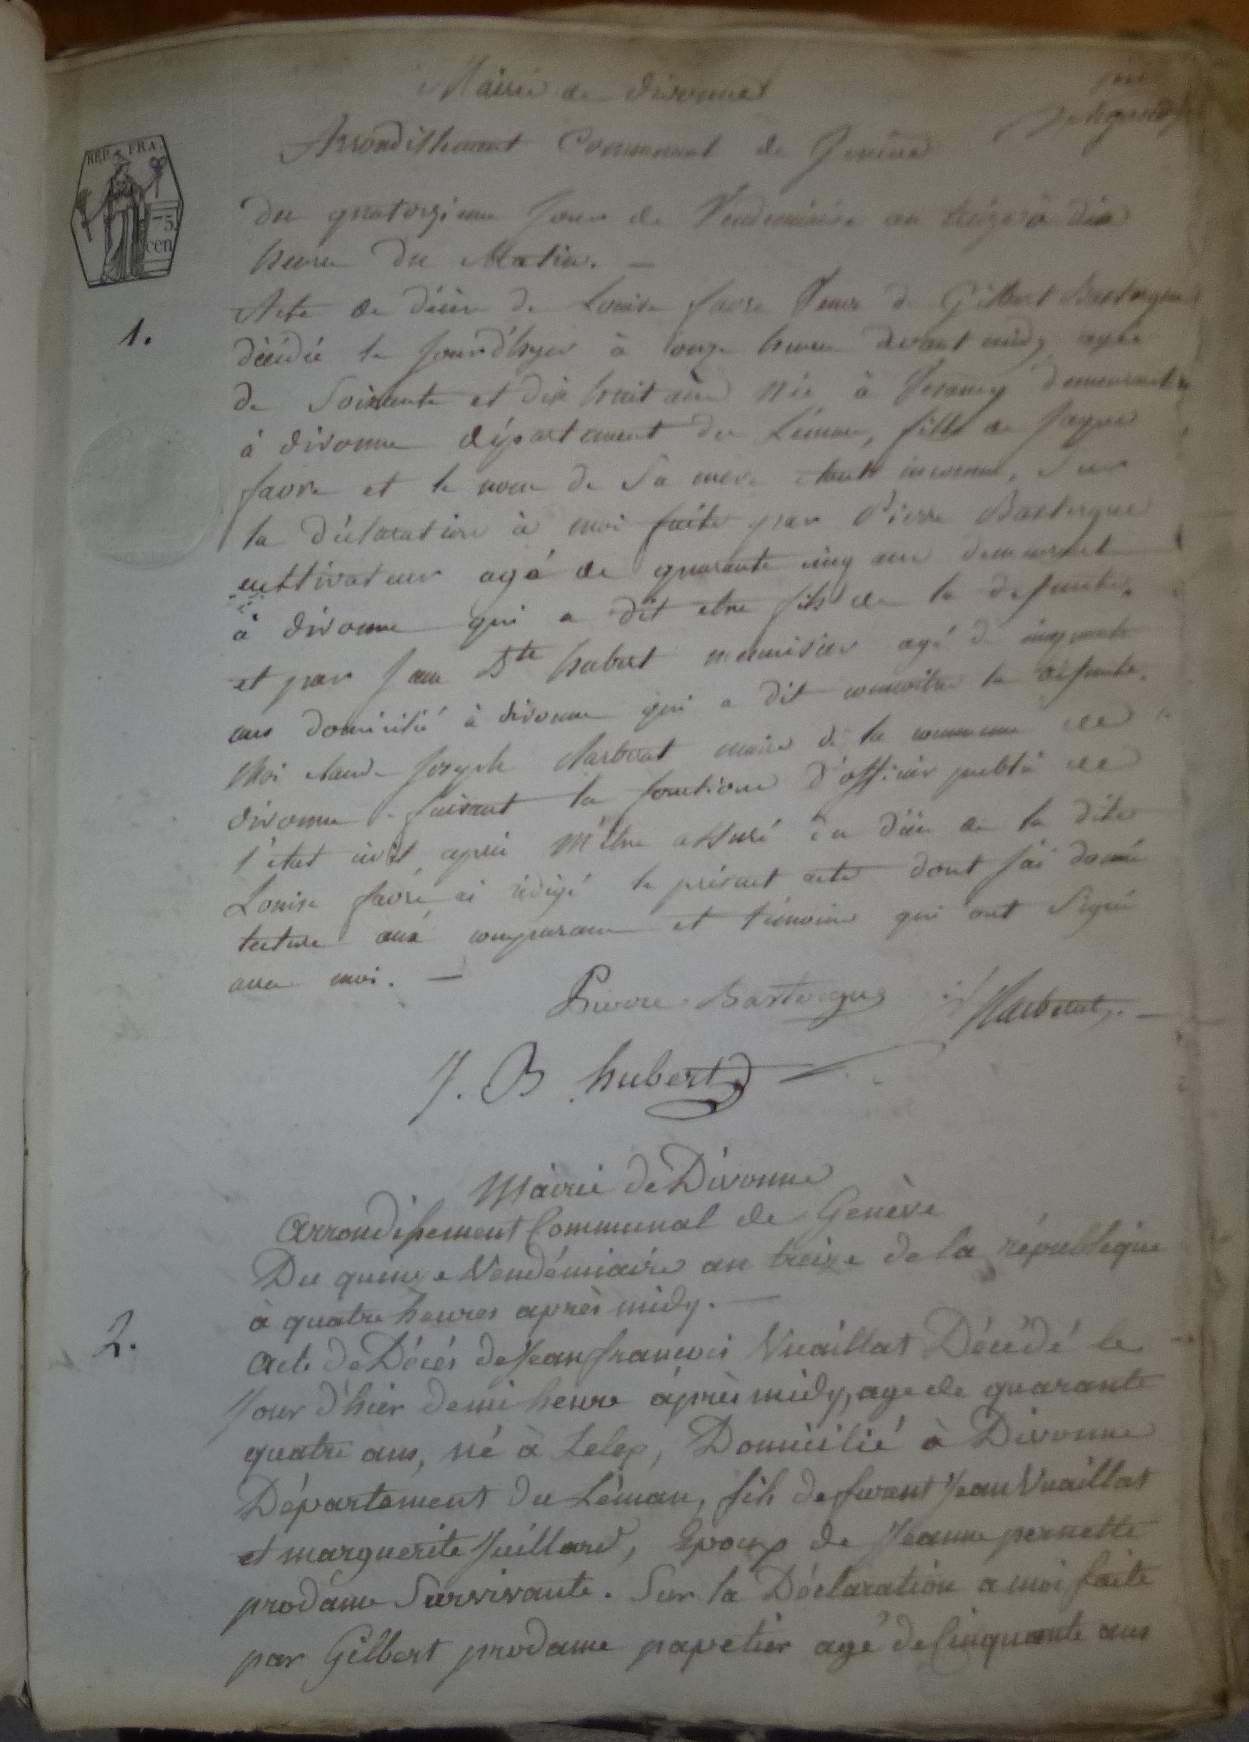 Mairie de divonne
Arrondissement Communal de Geneve
REP. FRA.
75
cen
du quatorzieme Jour de Vendemiaire an treize à dix
heure du Matin. —
1.
Acte de décès de Louise favre Veuve de Gilbert Bastergue
décédée le Jourd'hyer à onze heure devant midy agée
de Soixante et dix huit ans Née à demeurant
à divonne département du Léman, fille de Jaque
favre et le nom de Sa mere etant inconnu, Sur
la déclaration à moi faite par Pierre Bastergue
cultivateur agé de quarante cinq ans demeurant
à divonne qui a dit etre fils de la defunte.
et par Jean Bte hubert menuisier agé de cinquante
ans domicilié à divonne qui a dit connoitre la defunte.
Moi claude Joseph Marbout maire de la commune de
divonne faisant la fonctions d'officier public de
l'état civil après M'être assuré du décès de la dite
Louise favre ai rédigé le présent acte dont J'ai donné
lecture aux comparans et témoins qui ont Signé
avec moi. —
Pierre Bastergue
J. B hubert
Mairie de Divonne
Arrondissement Communal de Genève
Du quinze Vendémiaire an treize de la république
à quatre heures après midy. —
2.
acte de Décés de Jean françois Vuaillat Décédé le
Jour d'hier demi heure áprès midy, age de quarante
quatre ans, né à Lelex, Domicilié à Divonne
Département du Léman, fils de fueant Jean Vuaillat
et marguerite Juillard, Epoux de Jeanne pernette
prodame Survivante. Sur la Déclaration a moi faite
par Gilbert prodame papetier agé de Cinquante ans